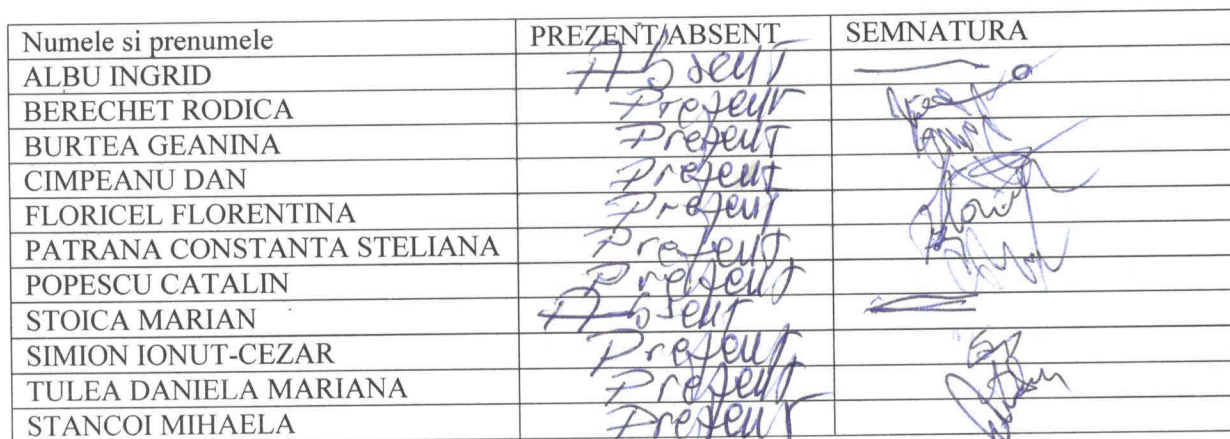 Numele si prenumele PREZENT/ABSENT SEMNATURA
ALBU INGRID Absent
BERECHET RODICA Prezent
BURTEA GEANINA Prezent
CIMPEANU DAN Prezent
FLORICEL FLORENTINA Prezent
PATRANA CONSTANTA STELIANA Prezent
POPESCU CATALIN Prezent
STOICA MARIAN Absent
SIMION IONUT-CEZAR Prezent
TULEA DANIELA MARIANA Prezent
STANCOI MIHAELA Prezent